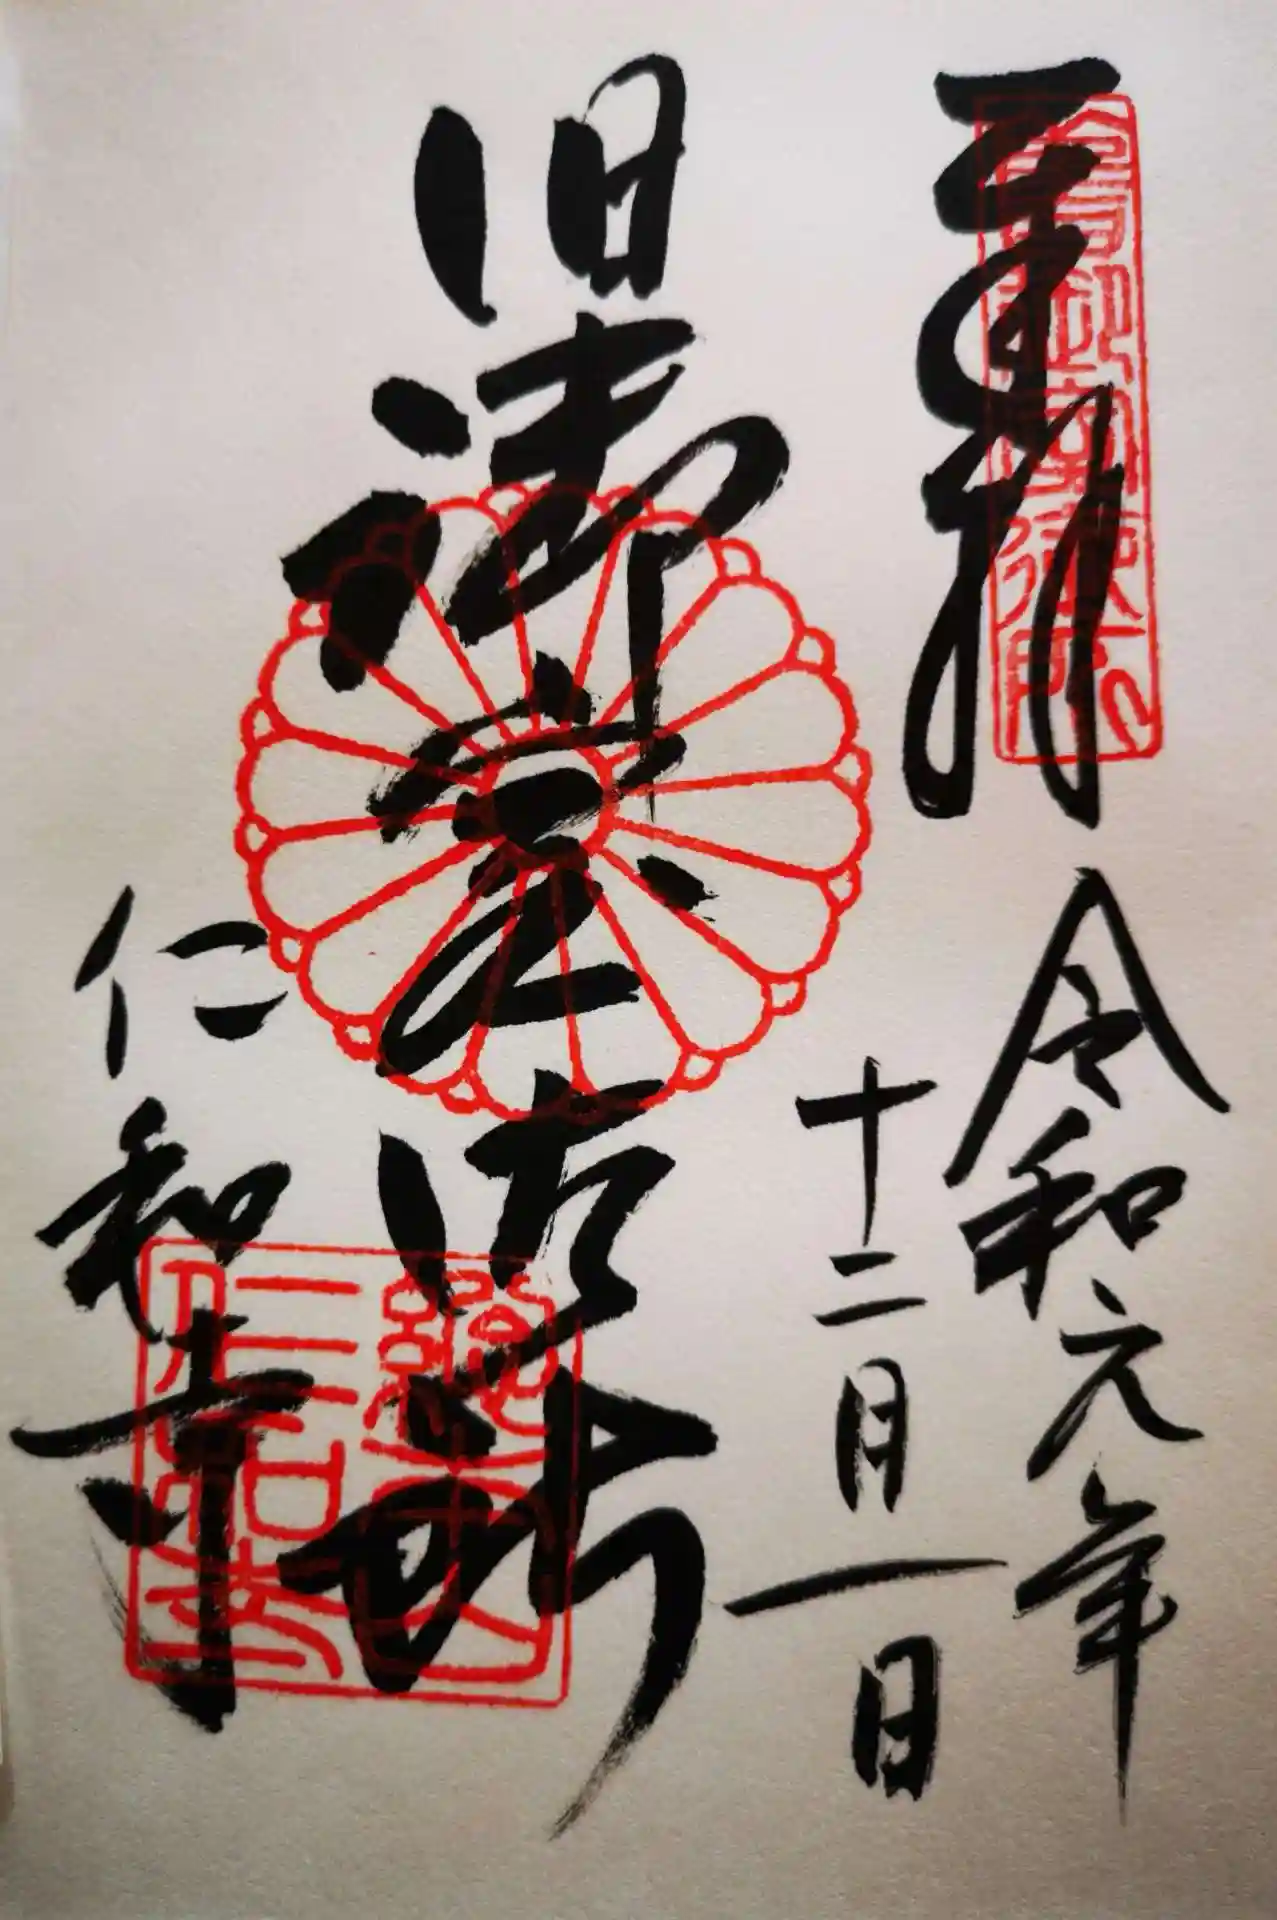 奉拝
令和元年
十二月一日
旧御室御所
仁和寺
總本山
仁和寺